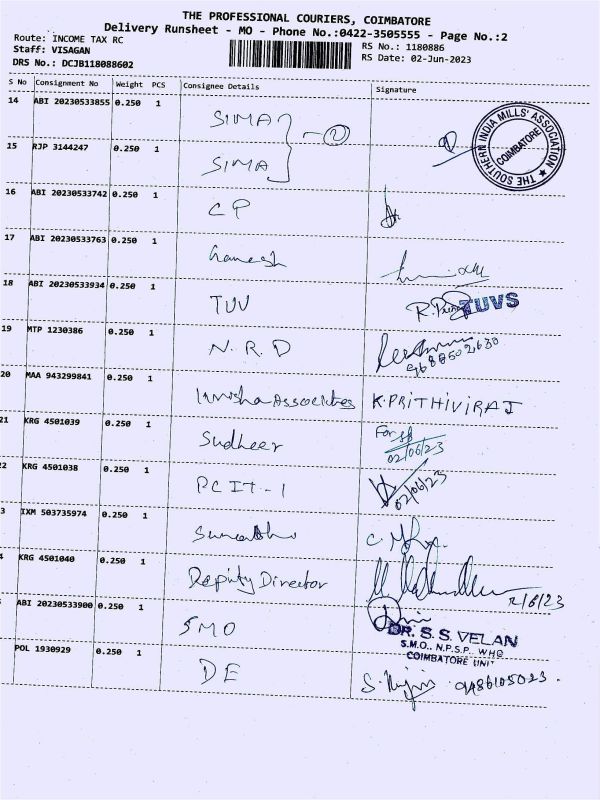 THE PROFESSIONAL COURIERS, COIMBATORE
Delivery Runsheet - MO - Phone No.:0422-3505555 - Page No.:2
Route: INCOME TAX RC
RS No.: 1180886
Staff: VISAGAN
RS Date: 02-Jun-2023
DRS No.: DCJB118088602
S No Consignment No Weight PCS Consignee Details Signature
14 ABI 20230533855 0.250 1 SIMA
2
THE SOUTHERN INDIA MILLS' ASSOCIATION ★ COIMBATORE
15 RJP 3144247 0.250 1 SIMA
16 ABI 20230533742 0.250 1 CP
17 ABI 20230533763 0.250 1 Ganesh
18 ABI 20230533934 0.250 1 TUV TUVS
19 MTP 1230386 0.250 1 N.R.D
9688502630
20 MAA 943299841 0.250 1 Associates K.PRITHIVIRAJ
21 KRG 4501039 0.250 1 Sudheer For
02/06/23
2 KRG 4501038 0.250 1 PCIT-1 02/06/23
3 IXM 503735974 0.250 1
4 KRG 4501040 0.250 1 Deputy Director 2/6/23
ABI 20230533900 0.250 1 SMO
DR. S. S. VELAN
S.M.O., N.P.S.P. WHO
COIMBATORE UNIT
POL 1930929 0.250 1 DE 9486105023